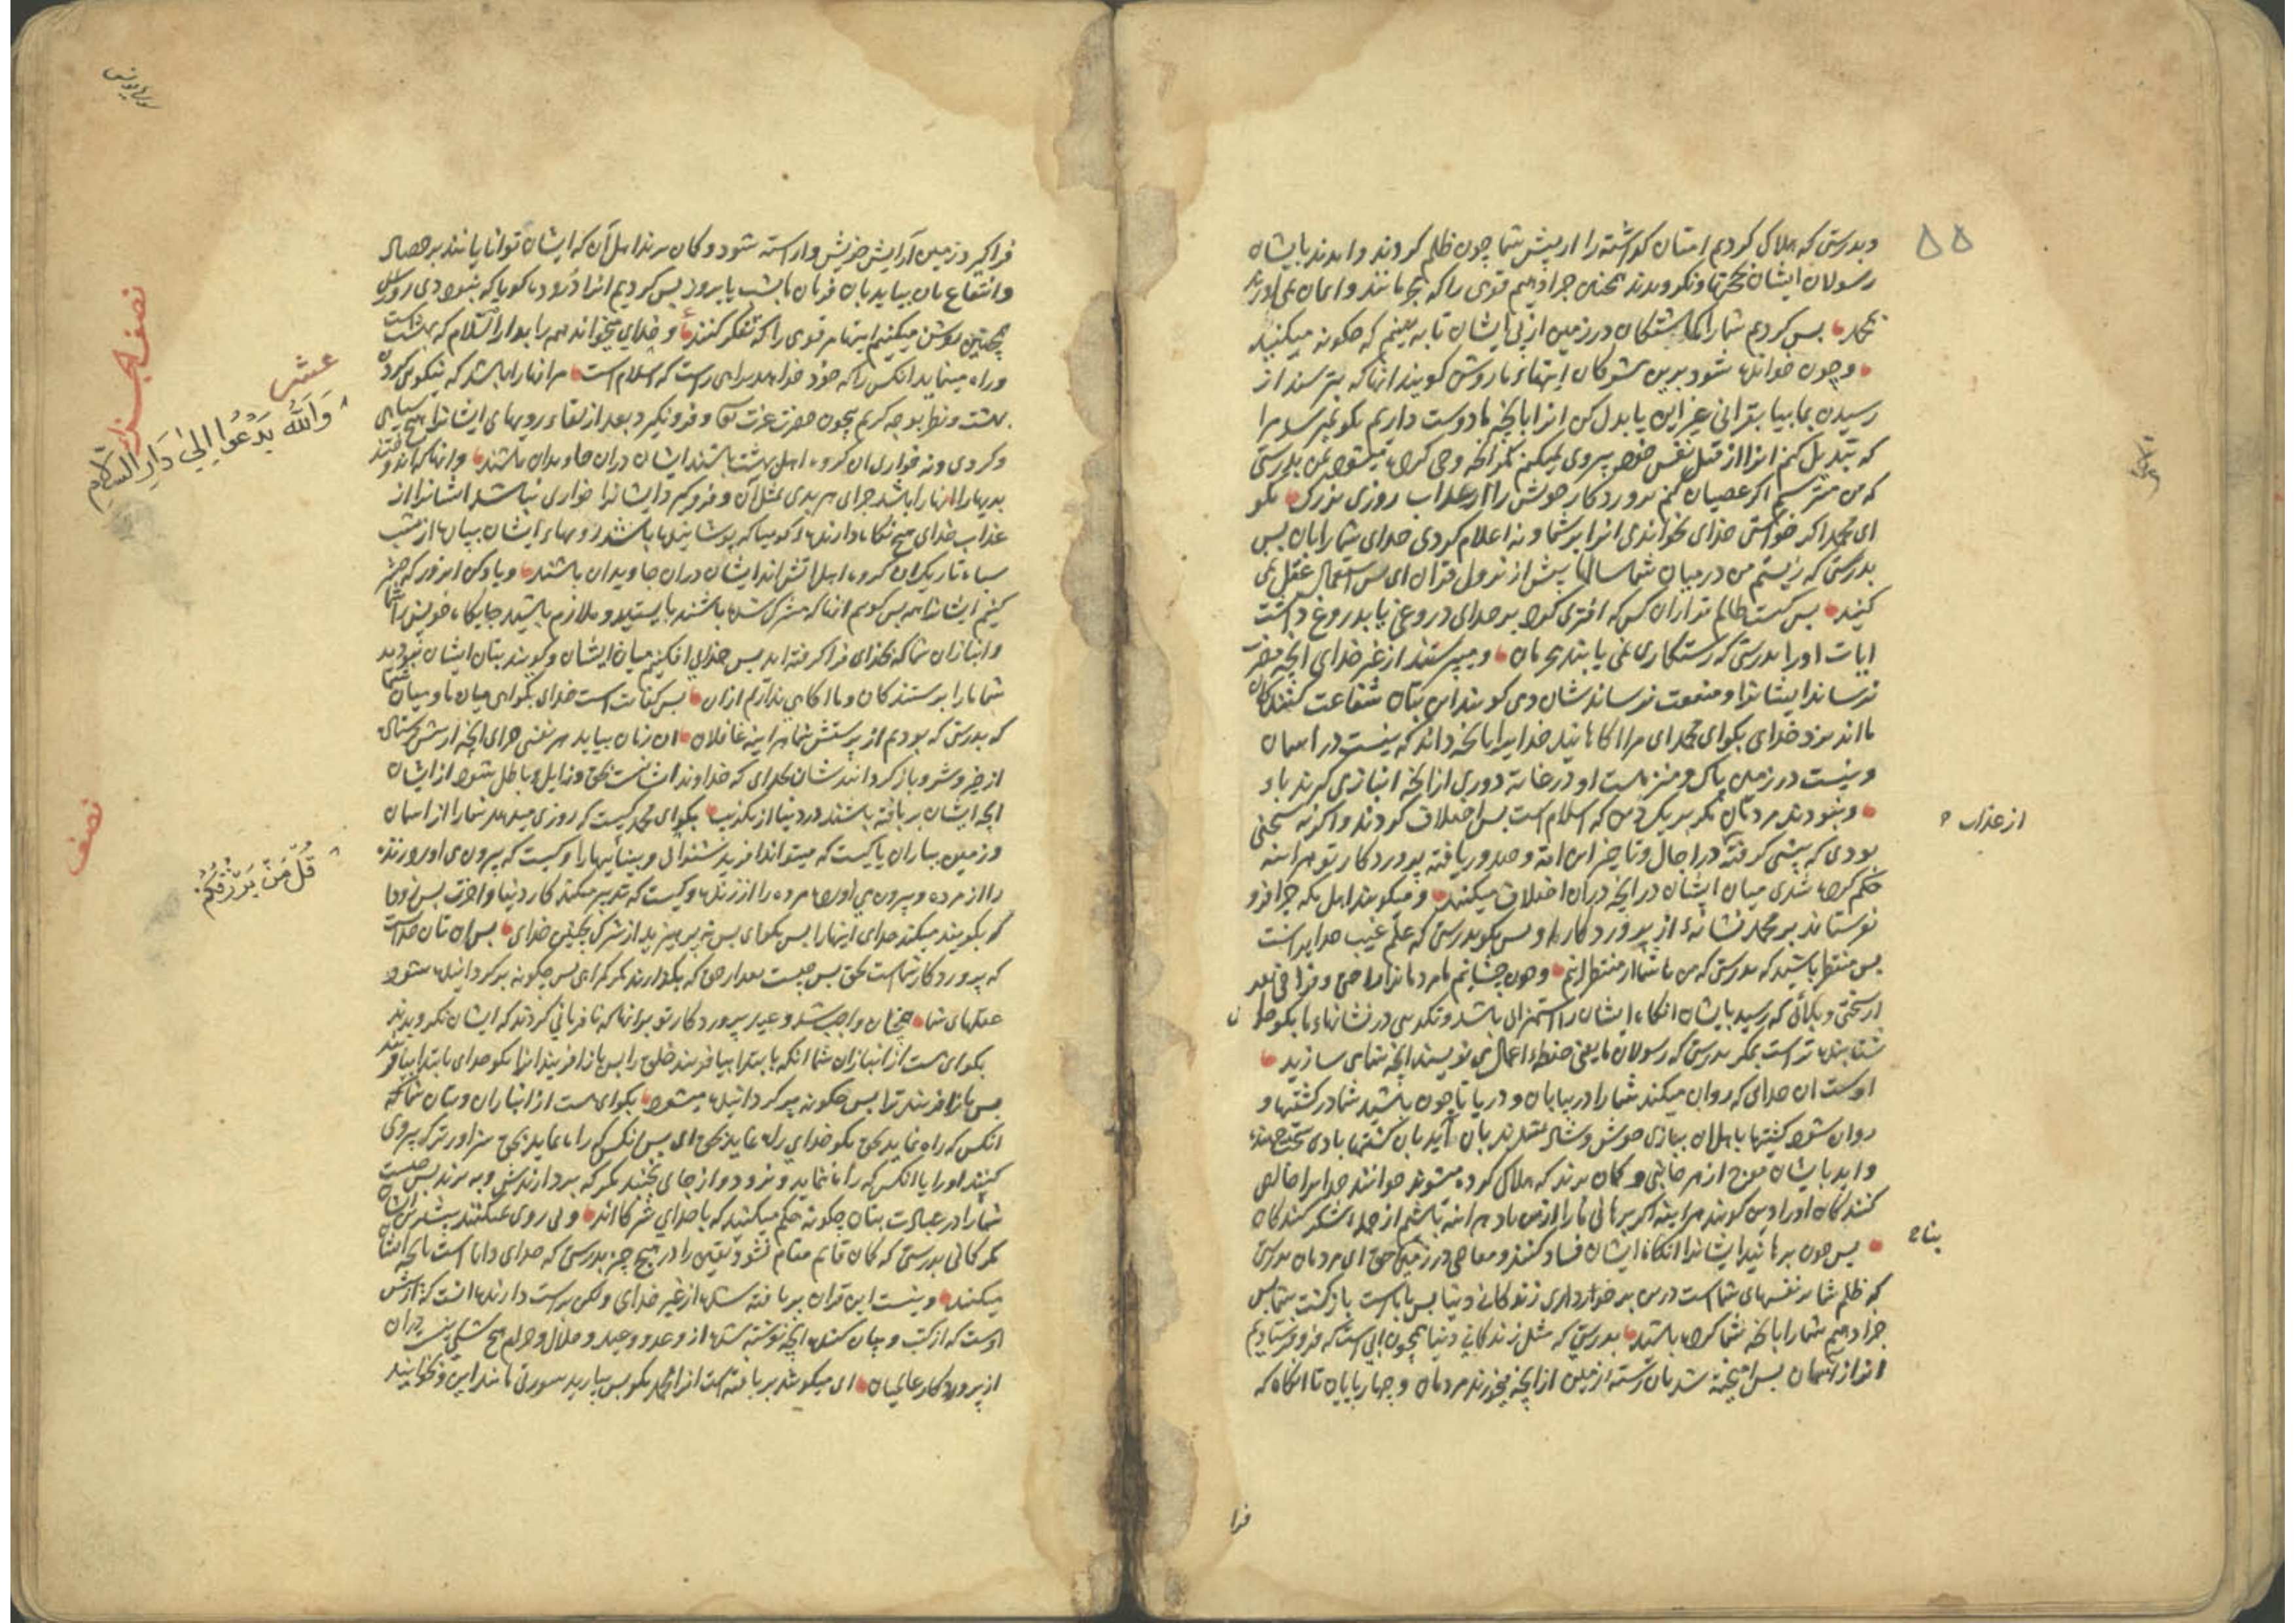 ۵۵
و بدرستی که هلاک کردیم امتان کذشته را از پیش شما چون ظلم کردند و امدند بایشان
رسولان ایشان بحجتها و نکرویدند همچنین جزا دهیم قومی را که مجرمانند و ایمان نمی اورند
بمحمد پس کردیم شما را کماشتکان در زمین از پی ایشان تا به بینم که چکونه میکنید
و چون خوانده شود برین مشرکان ایتهاء ما روشن کویند انها که نترسند از
رسیدن بما بیا بقرانی غیر این یا بدل کن انرا بانچه ما دوست داریم بکو نمیرسد مرا
که تبدیل کنم انرا از قبل نفس خود پیروی نمیکنم مکر انچه وحی کرده میشود بمن بدرستی
که من میترسم اکر عصیان کنم پروردکار خویش را از عذاب روزی بزرک بکو
ای محمد اکر خواستی خدای نخواندی انرا بر شما و نه اعلام کردی خدای شما را بان پس
بدرستی که زیستم من در میان شما سالها پیش از نزول قران ای پس استعمال عقل نمی
کنید پس کیست ظالم تر از ان کس که افتری کرد بر خدای دروغی یا بدروغ داشت
ایات او را بدرستی که رستکاری نمی یابند مجرمان و میپرستند از غیر خدای انچه مضرت
نرساند ایشانرا و منفعت نرساندشان و می کویند این بتان شفاعت کنندکان
ما اند نزد خدای بکو ای محمد ای مر اکاهانید خدایرا بانچه داند که نیست در اسمان
و نیست در زمین پاک و منزهست او در غایة دوری از انچه انبازی کیرند باو
و نبودند مردمان مکر بر یک دین که اسلام است پس اختلاف کردند و اکر نه سخنی
بودی که پیشی کرفته در اجال و تاخیر این امة و صدور یافته پروردکار تو هراینه
از عذاب
حکم کرده شدی میان ایشان در انچه دران اختلاف میکنند و میکویند اهل مکه چرا فرو
نفرستاند بر محمد نشانهٔ از پروردکار او پس بکو بدرستی که علم غیب خدایراست
پس منتظر باشید که بدرستی که من با شما از منتظرانم و چون چشانیم ما مردمانرا راحتی و فراخی بعد
از سختی و بلائی که رسید بایشان انکاه ایشان را استهزائی باشد و تکذیبی در نشانهاء ما بکو خدا
شتابنده تر است بمکر بدرستی که رسولان ما یعنی حفظه اعمال می نویسند انچه شما می سازید
اوست ان خدای که روان میکند شما را در بیابان و دریا تا چون باشید شما در کشتیها و
روان شود کشتیها باهلان ببادی خوش و شاد شدند بان اید بان کشتیها بادی سخت جهنده
و اید بایشان موج از هر جانبی و کمان برند که هلاک کرده میشوند خوانند خدایرا خالص
کنندکان او را دین کویند هراینه اکر برهانی ما را از این باد هراینه باشیم از جمله شکر کنندکان
پس چون برهانید ایشانرا انکاه ایشان فساد کنند و معاصی در زمین بناحق ای مردمان بدرستی
که ظلم شما بر نفسهای شماست در پس برخورداری زندکانی دنیا پس باماست بازکشت شما پس
جزا دهیم شما را بانچه شما کرده باشید بدرستی که مثل زندکانی دنیا همچون ابی است که فرو فرستادیم
انرا از اسمان پس امیخته شد بان رسته از زمین از انچه میخورند مردمان و چهارپایان تا انکاه که
فرا
سوره یونس
فراکیرد زمین ارایش خویش و اراسته شود و کمان برند اهل آن که ایشان توانایانند بر حصاد
و انتفاع بان بیاید بان فرمان ما بشب یا بروز پس کردیم انرا دروده کویا که نبوده دی روز
همچنین روشن میکنیم ایتها مر قومی را که تفکر کنند و خدای میخواند همه را بدار السلام که بهشت است
و راه مینماید انکس را که خود خواهد براه راست که اسلام است مر انها را باشد که نیکوئی کردن
عشر
نصف الجزء
وَاللّٰهُ یَدْعُوا اِلیٰ دَارِ السَّلَامِ
بهشت و نظر بوجه کریم بیچون حضرت عزت و فرونکیرد بعد از لقاء رویهای ایشانرا هیچ سیاهی
و کردی و نه خواری ان کروه اهل بهشت باشند ایشان دران جاویدان باشند و انها که اندوختند
بدیها را انها را باشد جزای هر بدی بمثل آن و فروکیرد ایشانرا خواری نباشد ایشانرا از
عذاب خدای هیچ نکاه دارنده کوییا که پوشانیده باشد رویهاء ایشان بپارها از شب
سیاه تاریک ان کروه اهل اتش اند ایشان دران جاویدان باشند و یاد کن ان روز که حشر
کنیم ایشانرا همه پس کویم انها که مشرک شده باشند بایستید و ملازم باشید جایکاه خویش را شما
و انبازان شما که بخدای فراکرفته اید پس جدایی افکنیم میان ایشان و کویند بتان ایشان نبودید
شما ما را پرستندکان و ما اکاهی نداریم ازان پس کفایت است خدای بکواهی میان ما و میان شما
که بدرستی که بودیم از پرستش شما هراینه غافلان ان زمان بیابد هر نفسی جزای انچه از پیش فرستاده
از خیر و شر و بازکردانیدشان بخدای که خداوند ایشانست بحق و زایل و باطل شود از ایشان
انچه ایشان بر بافته باشند در دنیا از تکذیب بکو ای محمد کیست که روزی میدهد شما را از اسمان
نصف
قُلْ مَنْ یَرْزُقُکُمْ
و زمین بباران یا کیست که میتواند افرید شنوائی و بینائیها را و کیست که بیرون می اورد زنده
را از مرده و بیرون می اورد مرده را از زنده و کیست که تدبیر میکند کار دنیا و اخرت پس زود
که بکویند میکند خدای اینها را پس بکو ای پس نه بپرهیزید از شرک بچنین خدای پس ان تان خداست
که پروردکار شماست بحق پس چیست بعد از حق که بکذارند مکر کمراهی پس چکونه برکردانیده شود
عقلهای شما همچنان واجب شد وعید پروردکار تو بر انها که نافرمانی کردند که ایشان نکرویدند
بکو ای هست از انبازان شما انکه بابتدا بیافریند خلق را پس باز افریند انرا بکو خدای بابتدا بیافریند
پس باز افریندش پس چکونه برکردانیده میشوید بکو ای هست از انبازان و بتان شما که
انکس که راه نماید بحق بکو خدای راه نماید بحق ای پس انکس که راه نماید بحق سزاوارتر که پیروی
کنید او را یا انکس که راه ننماید و نرود و از جای نجنبد مکر که بردارندش و به برند پس چیست
شما را در عبادت بتان چکونه حکم میکنید که با خدای شرکااند و پی روی نمیکنند بیشتر ایشان
مکر کمانی بدرستی که کمان قایم مقام نشود یقین را در هیچ چیز بدرستی که خدای داناست بانچه ایشان
میکنند و نیست این قران بربافته شده از غیر خدای ولکن راست دارنده انست که از پیش
اوست که از کتب و بیان کننده انچه نوشته شده از وعد و وعید و حلال و حرام هیچ شکی نیست دران
از پروردکار عالمیان ای میکویند بربافته است انرا محمد بکو پس بیارید سورتی مانند این و بخوانید